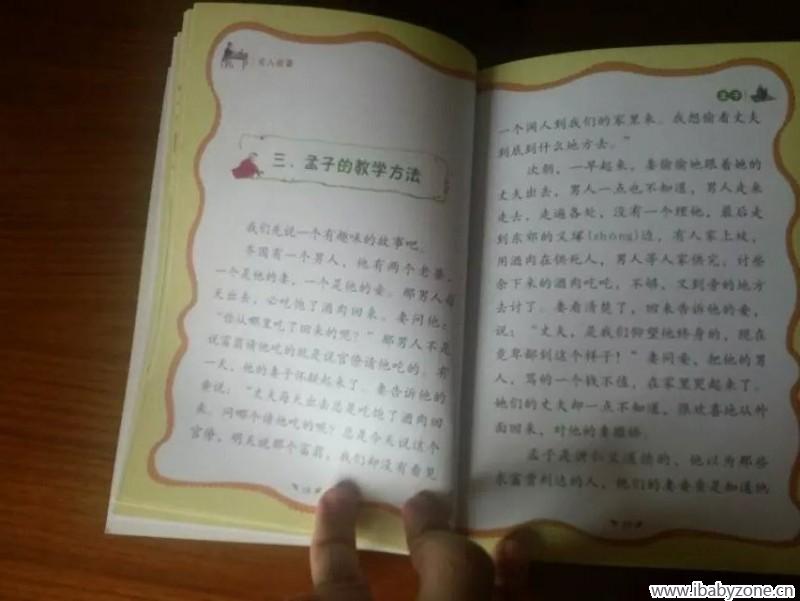 名人故事
三、孟子的教学方法
我们先说一个有趣味的故事吧。
齐国有一个男人，他有两个老婆，
一个是他的妻，一个是他的妾。那男人每
天出去，必吃饱了酒肉回来。妻问他：
“你从哪里吃了回来的呢？”那男人不是
说富翁请他吃的就是说官僚请他吃的。有
一天，他的妻子怀疑起来了。妻告诉他的
妾说：“丈夫每天出去总是吃饱了酒肉回
来。问哪个请他吃的呢？总是今天说这个
官僚，明天说那个富翁，我们却没有看见
孟子
一个阔人到我们的家里来。我想偷看丈夫
到底到什么地方去。”
次朝，一早起来，妻偷偷地跟着她的
丈夫出去，男人一点也不知道，男人走来
走去，走遍各处，没有一个理他，最后走
到东郊的义塚(zhǒng)边，有人家上坟，
用酒肉在供死人，男人等人家供完，讨些
余下来的酒肉吃吃，不够，又到旁的地方
去讨了。妻看清楚了，回来告诉他的妾，
说：“丈夫，是我们仰望他终身的，现在
竟卑鄙到这个样子！”妻同妾，把他的男
人，骂的一个钱不值，在家里哭起来了。
她们的丈夫却一点不知道，很欢喜地从外
面回来，对他的妻骄矜。
孟子是讲仁义道德的，他以为那些
求富贵利达的人，他们的妻妾要是知道他
www.ibabyzone.cn